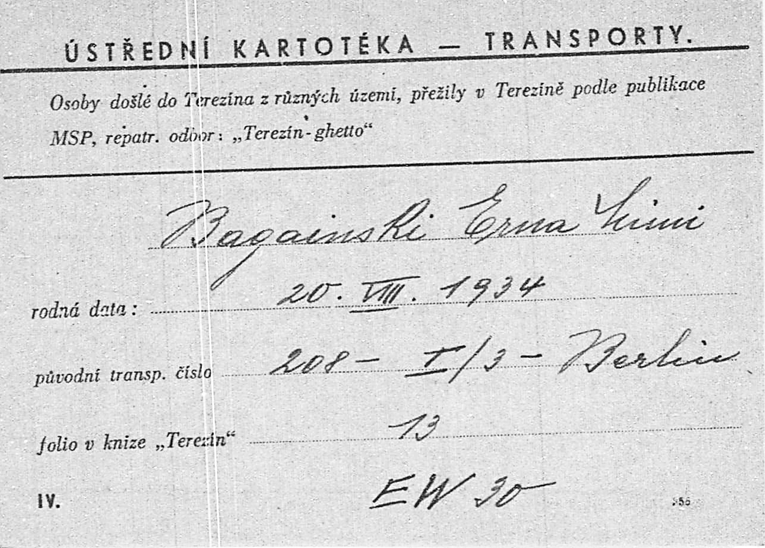 ÚSTŘEDNÍ KARTOTÉKA — TRANSPORTY.
Osoby došlé do Terezína z různých území, přežily v Terezíně podle publikace
MSP, repatr. odbor: „Terezín-ghetto“
Bagainski Erna
rodná data: 20. VIII. 1934
původní transp. číslo 208 – I/3 – Berlin
folio v knize „Terezín“ 13
IV. EW 30